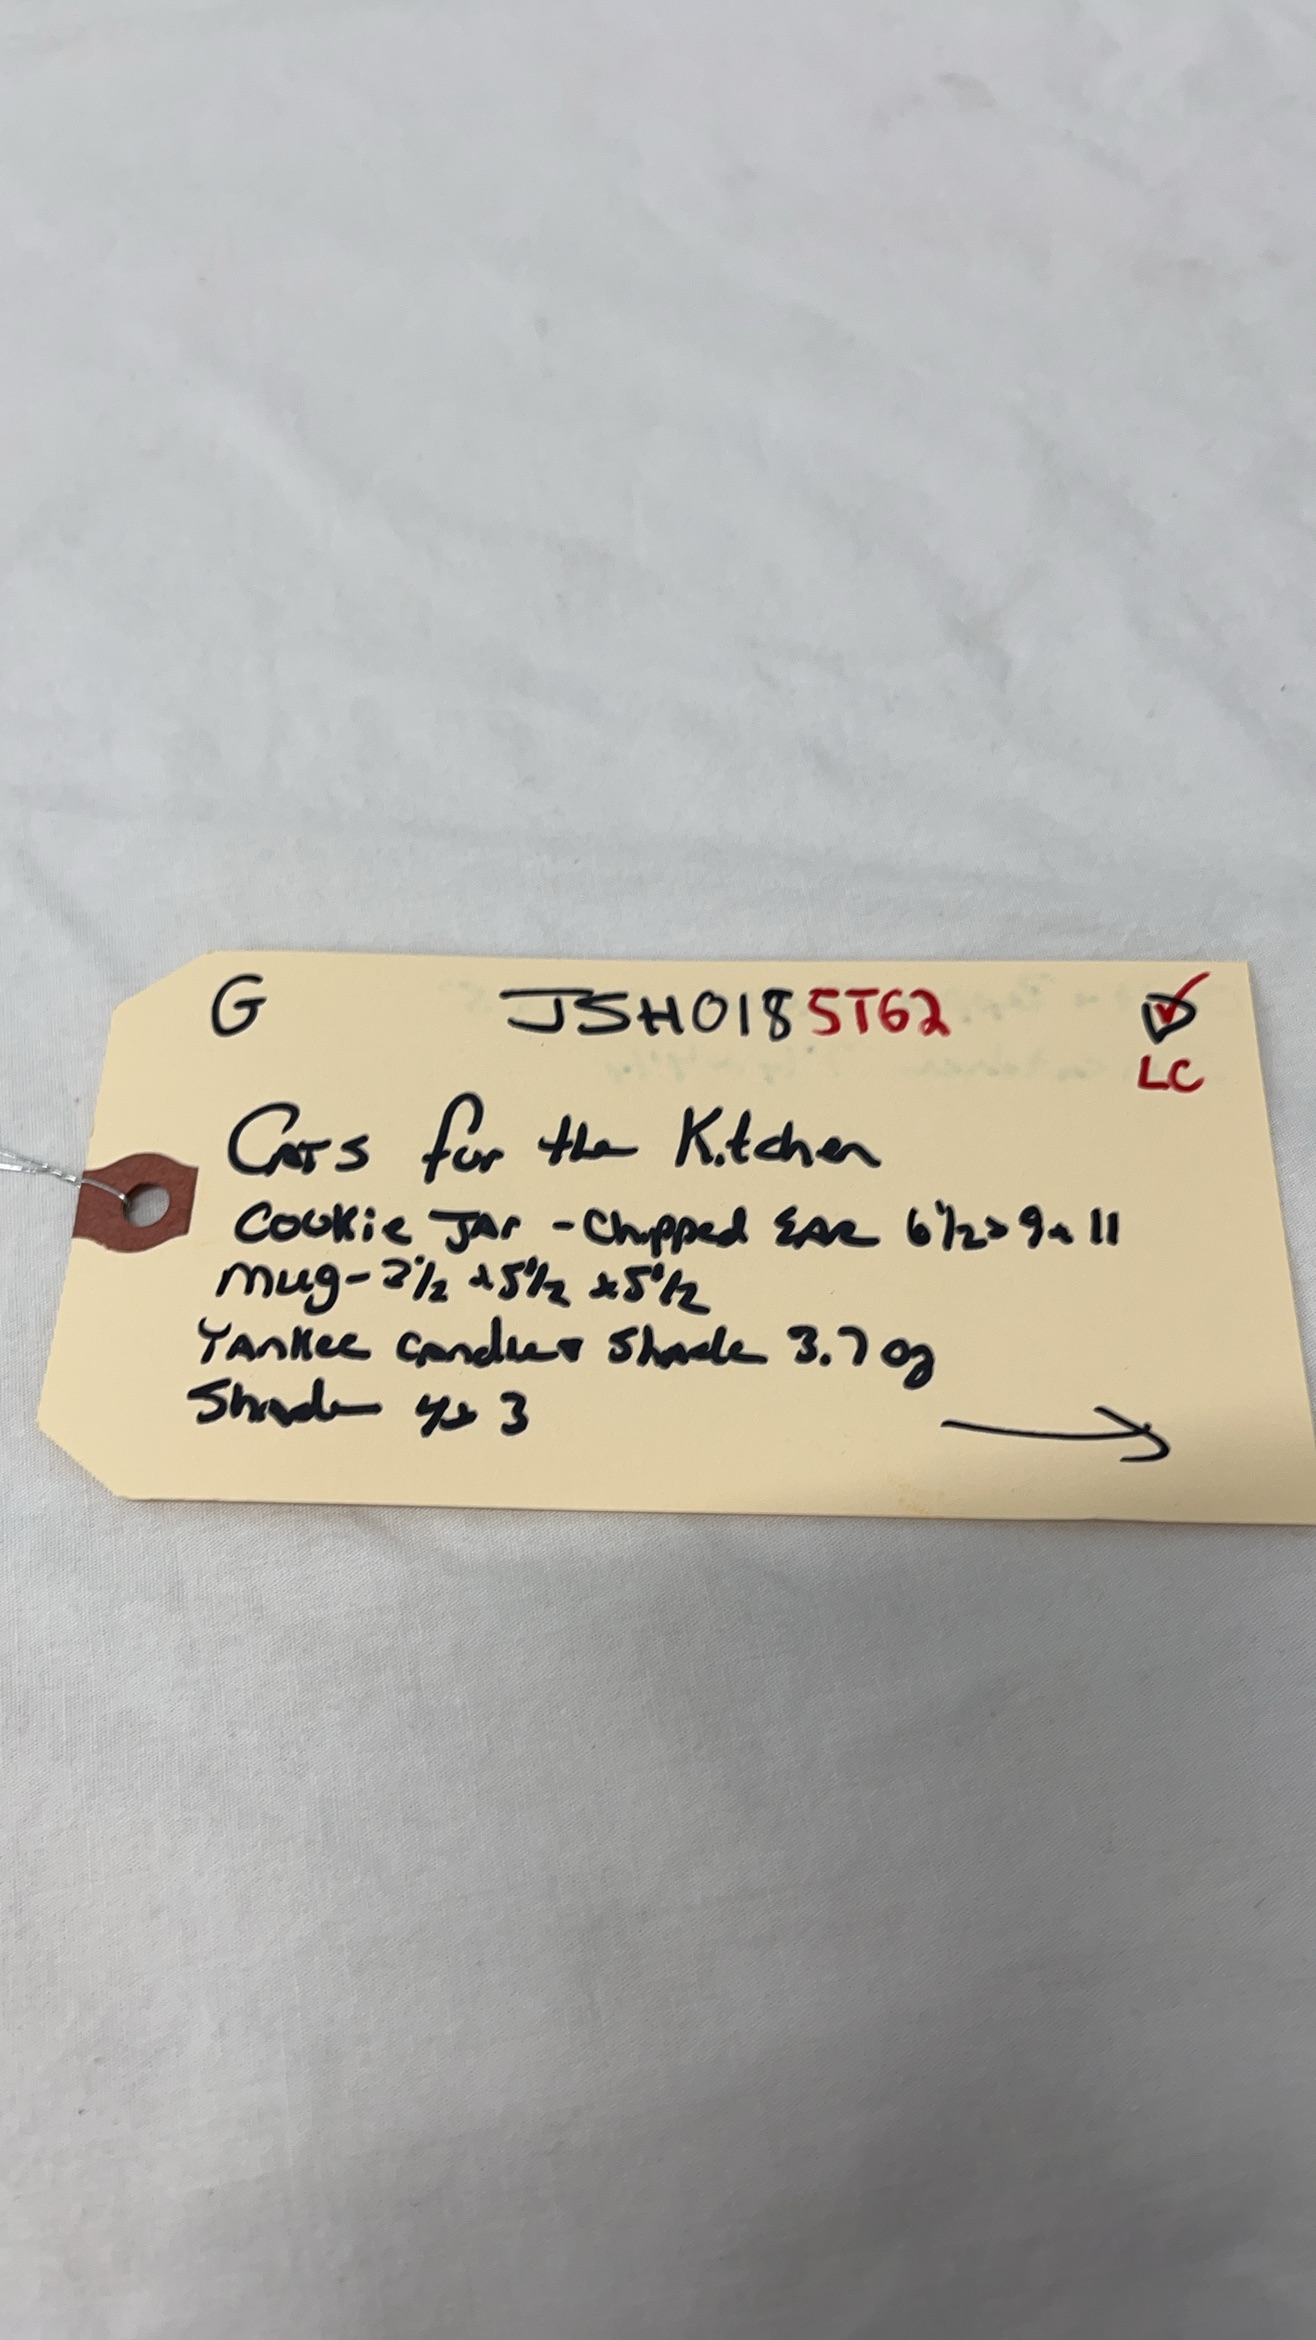 G JSH018 ST62
LC
Cats for the Kitchen
Cookie Jar - Chipped Ear 6 1/2 x 9 x 11
Mug - 3 1/2 x 5 1/2 x 5 1/2
Yankee Candle + Shade 3.7 oz
Shade 4 x 3